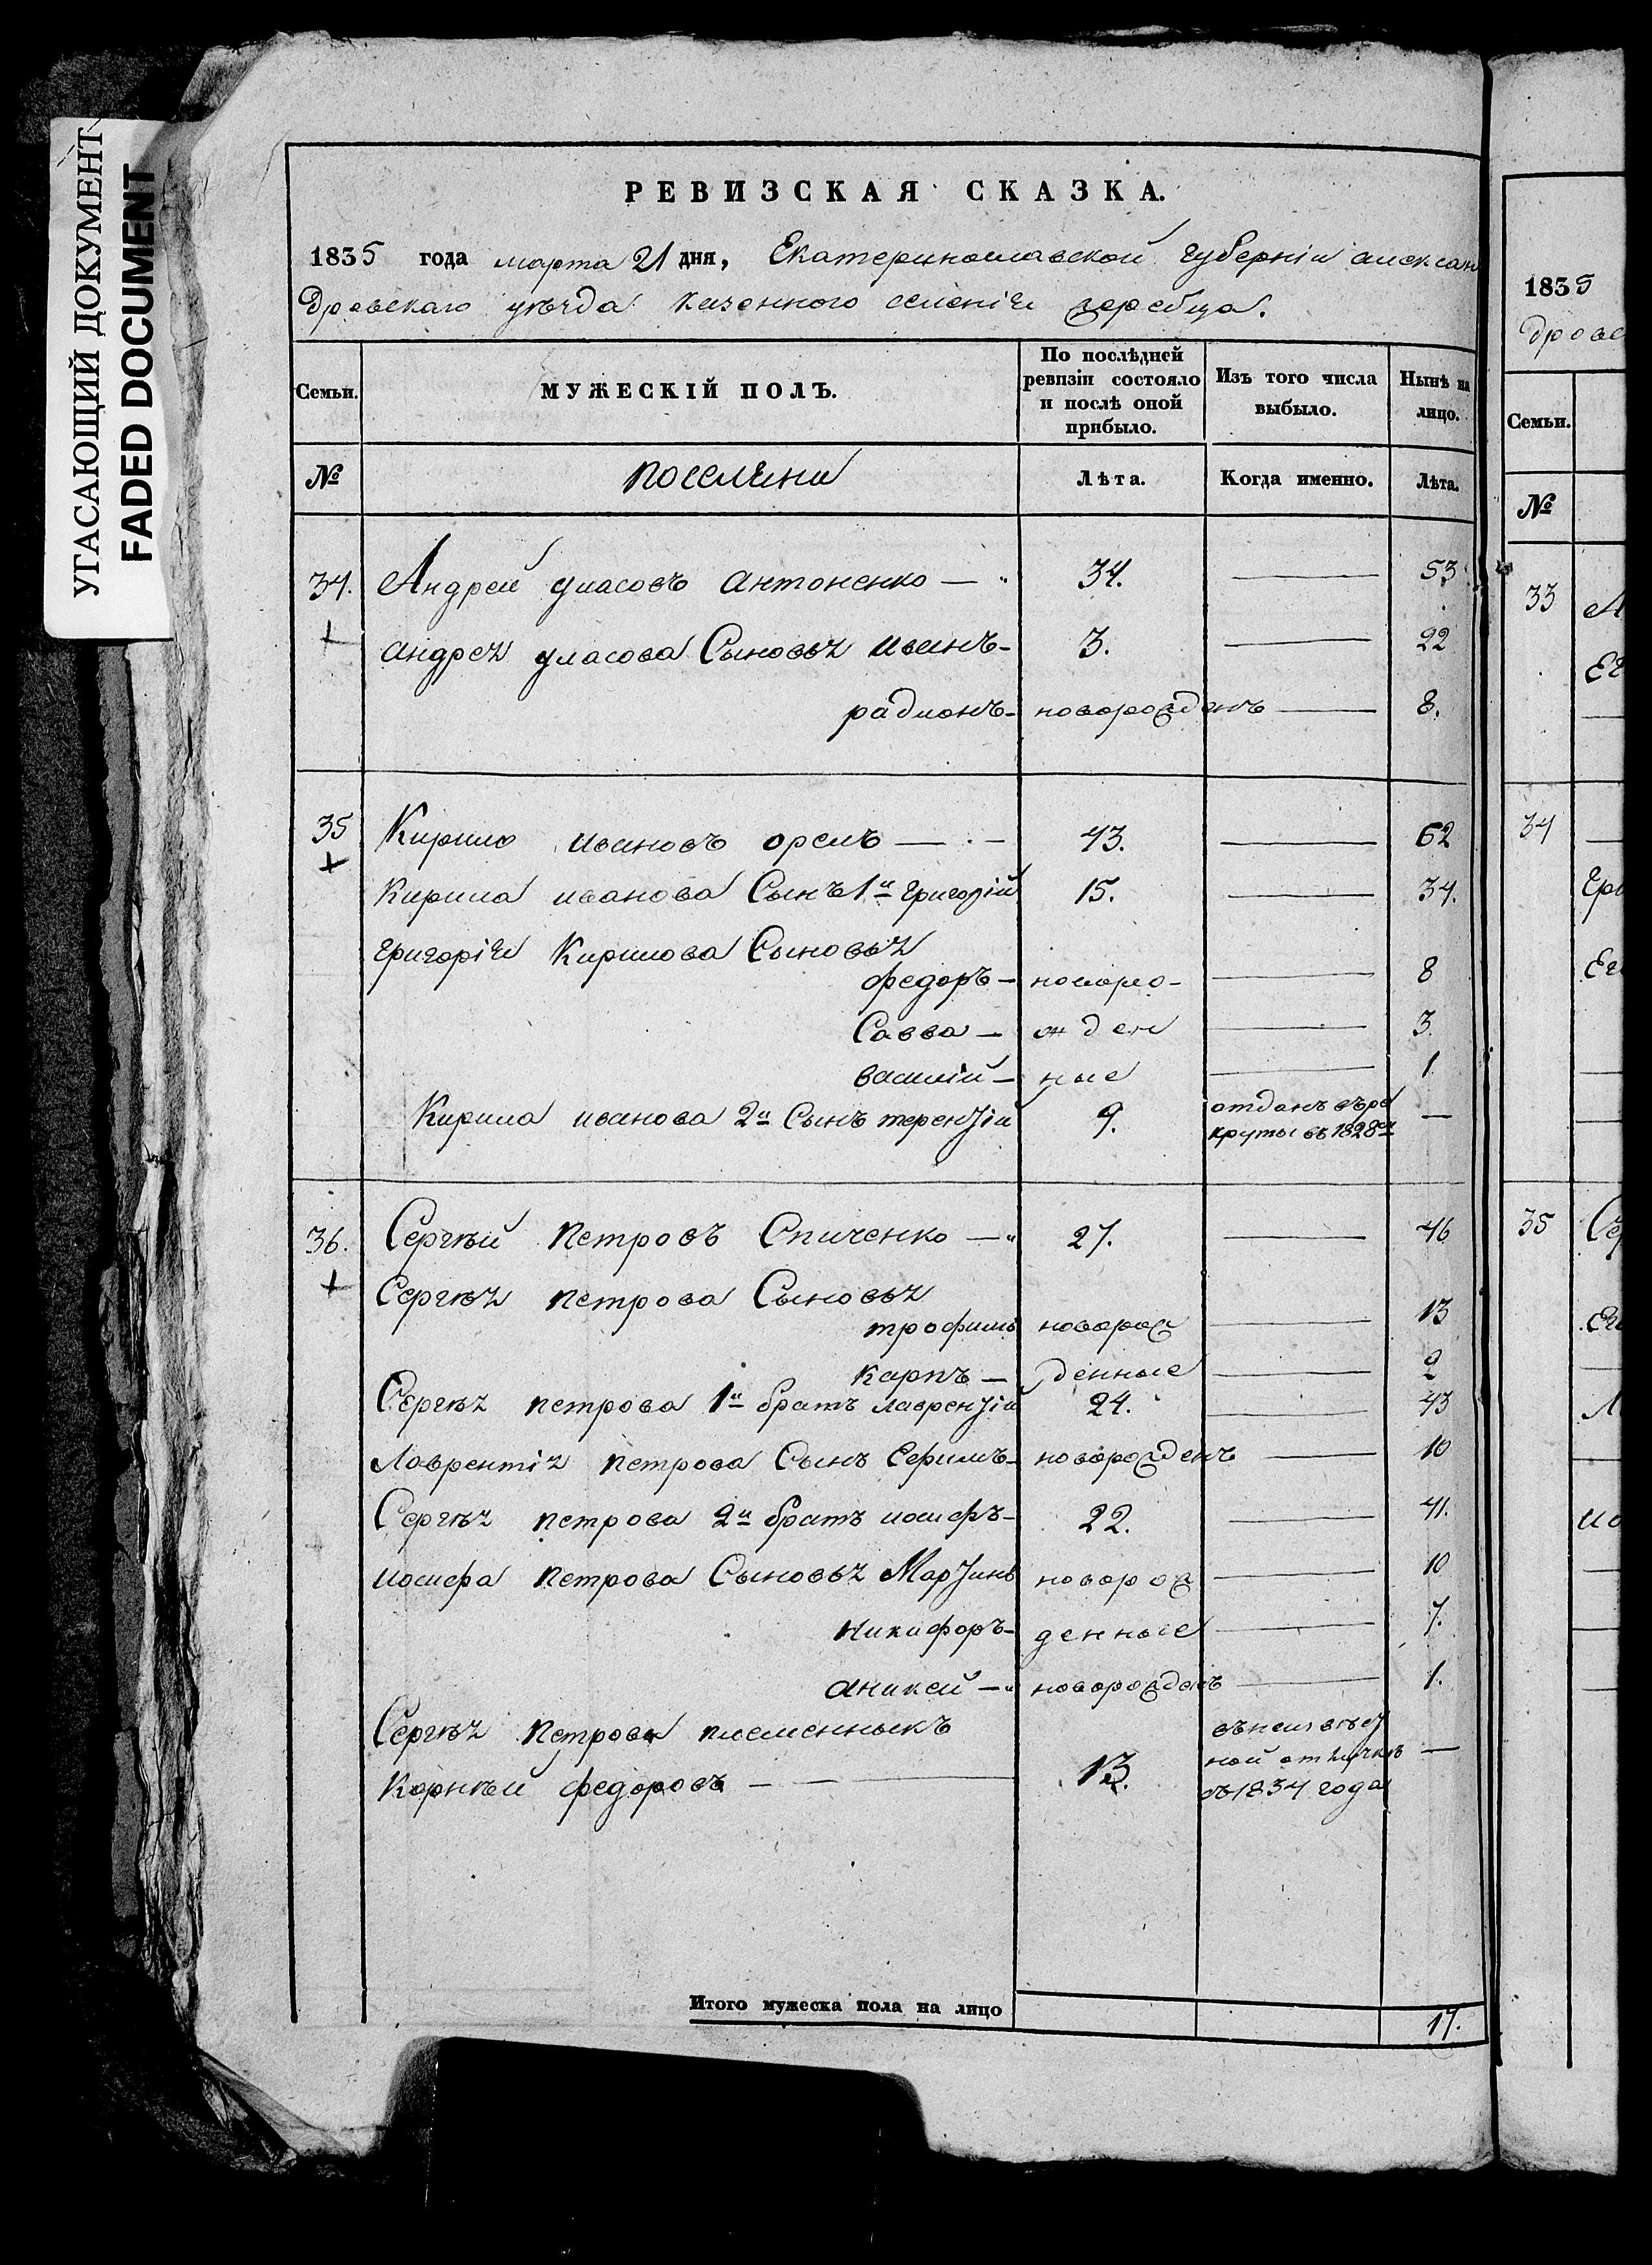 УГАСАЮЩИЙ ДОКУМЕНТ
FADED DOCUMENT
РЕВИЗСКАЯ СКАЗКА.
1835 года марта 21 дня, Екатеринославской губерніи алексан
дровскаго уѣзда казенного селенія жеребца.
Семьи. МУЖЕСКІЙ ПОЛЪ. По послѣдней ревизіи состояло и послѣ оной прибыло. Изъ того числа выбыло. Нынѣ на лицо.
№ поселяни Лѣта. Когда именно. Лѣта.
34. Андрей уласовъ антоненко — 34. — 53
андрея уласова Сыновья иванъ — 3. — 22
радионъ — новорожденъ — 8.
35 Кирило ивановъ орелъ — 43. — 62
кирила иванова Сынъ 1й григорій 15. — 34.
григорія Кирилова Сыновья
федоръ — новоро- — 8
Савва — жден — 3.
василій — ные — 1
Кирила иванова 2й Сынъ терентій 9. отданъ въре круты въ 1828м —
36. Сергѣй Петровъ Спиченко — 27. — 46
Сергѣя петрова Сыновья
трофимъ новорож — 13
карпъ — денные — 9
Сергѣя петрова 1й братъ лаврентій 24. — 43
Лаврентія петрова Сынъ Ефимъ — новорожденъ — 10
Сергѣя петрова 2й братъ иосифъ — 22. — 41.
иосифа петрова Сыновья Мартинъ новорож — 10
никифоръ — денные — 7.
аникей — новорожденъ — 1.
Сергѣя Петрова племенныкъ
Корнѣй федоровъ — 13. въ 1834 года —
Итого мужеска пола на лицо 17.
1835
дрове
Семьи.
№
33
34
35